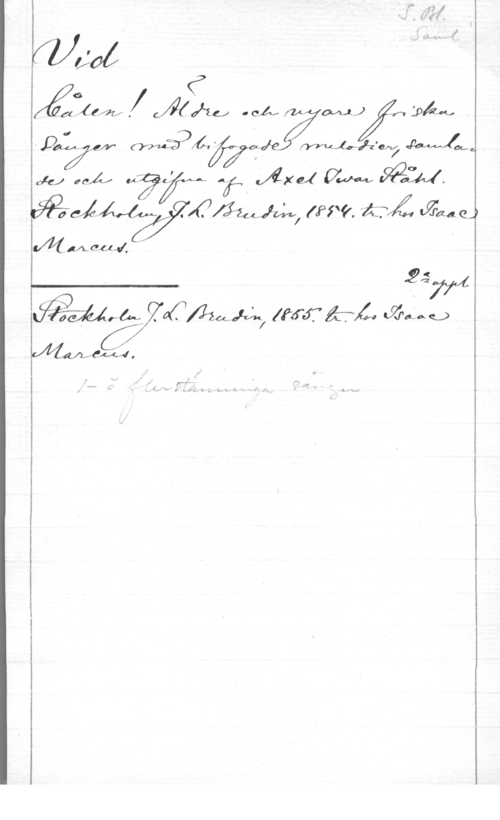 S. Bl.
Saml.
Vid
Bålen! Äldre och nyare friska
Sånger med bifogade melodier, samla-
de och utgifna af Axel Iwar Ståhl.
Stockholm, J. L. Brudin, 1854. tr. hos Isaac
Marcus.
2a uppl.
Stockholm J. L. Brudin, 1855. tr. hos Isaac
Marcus.
1- o flerstämmiga sånger